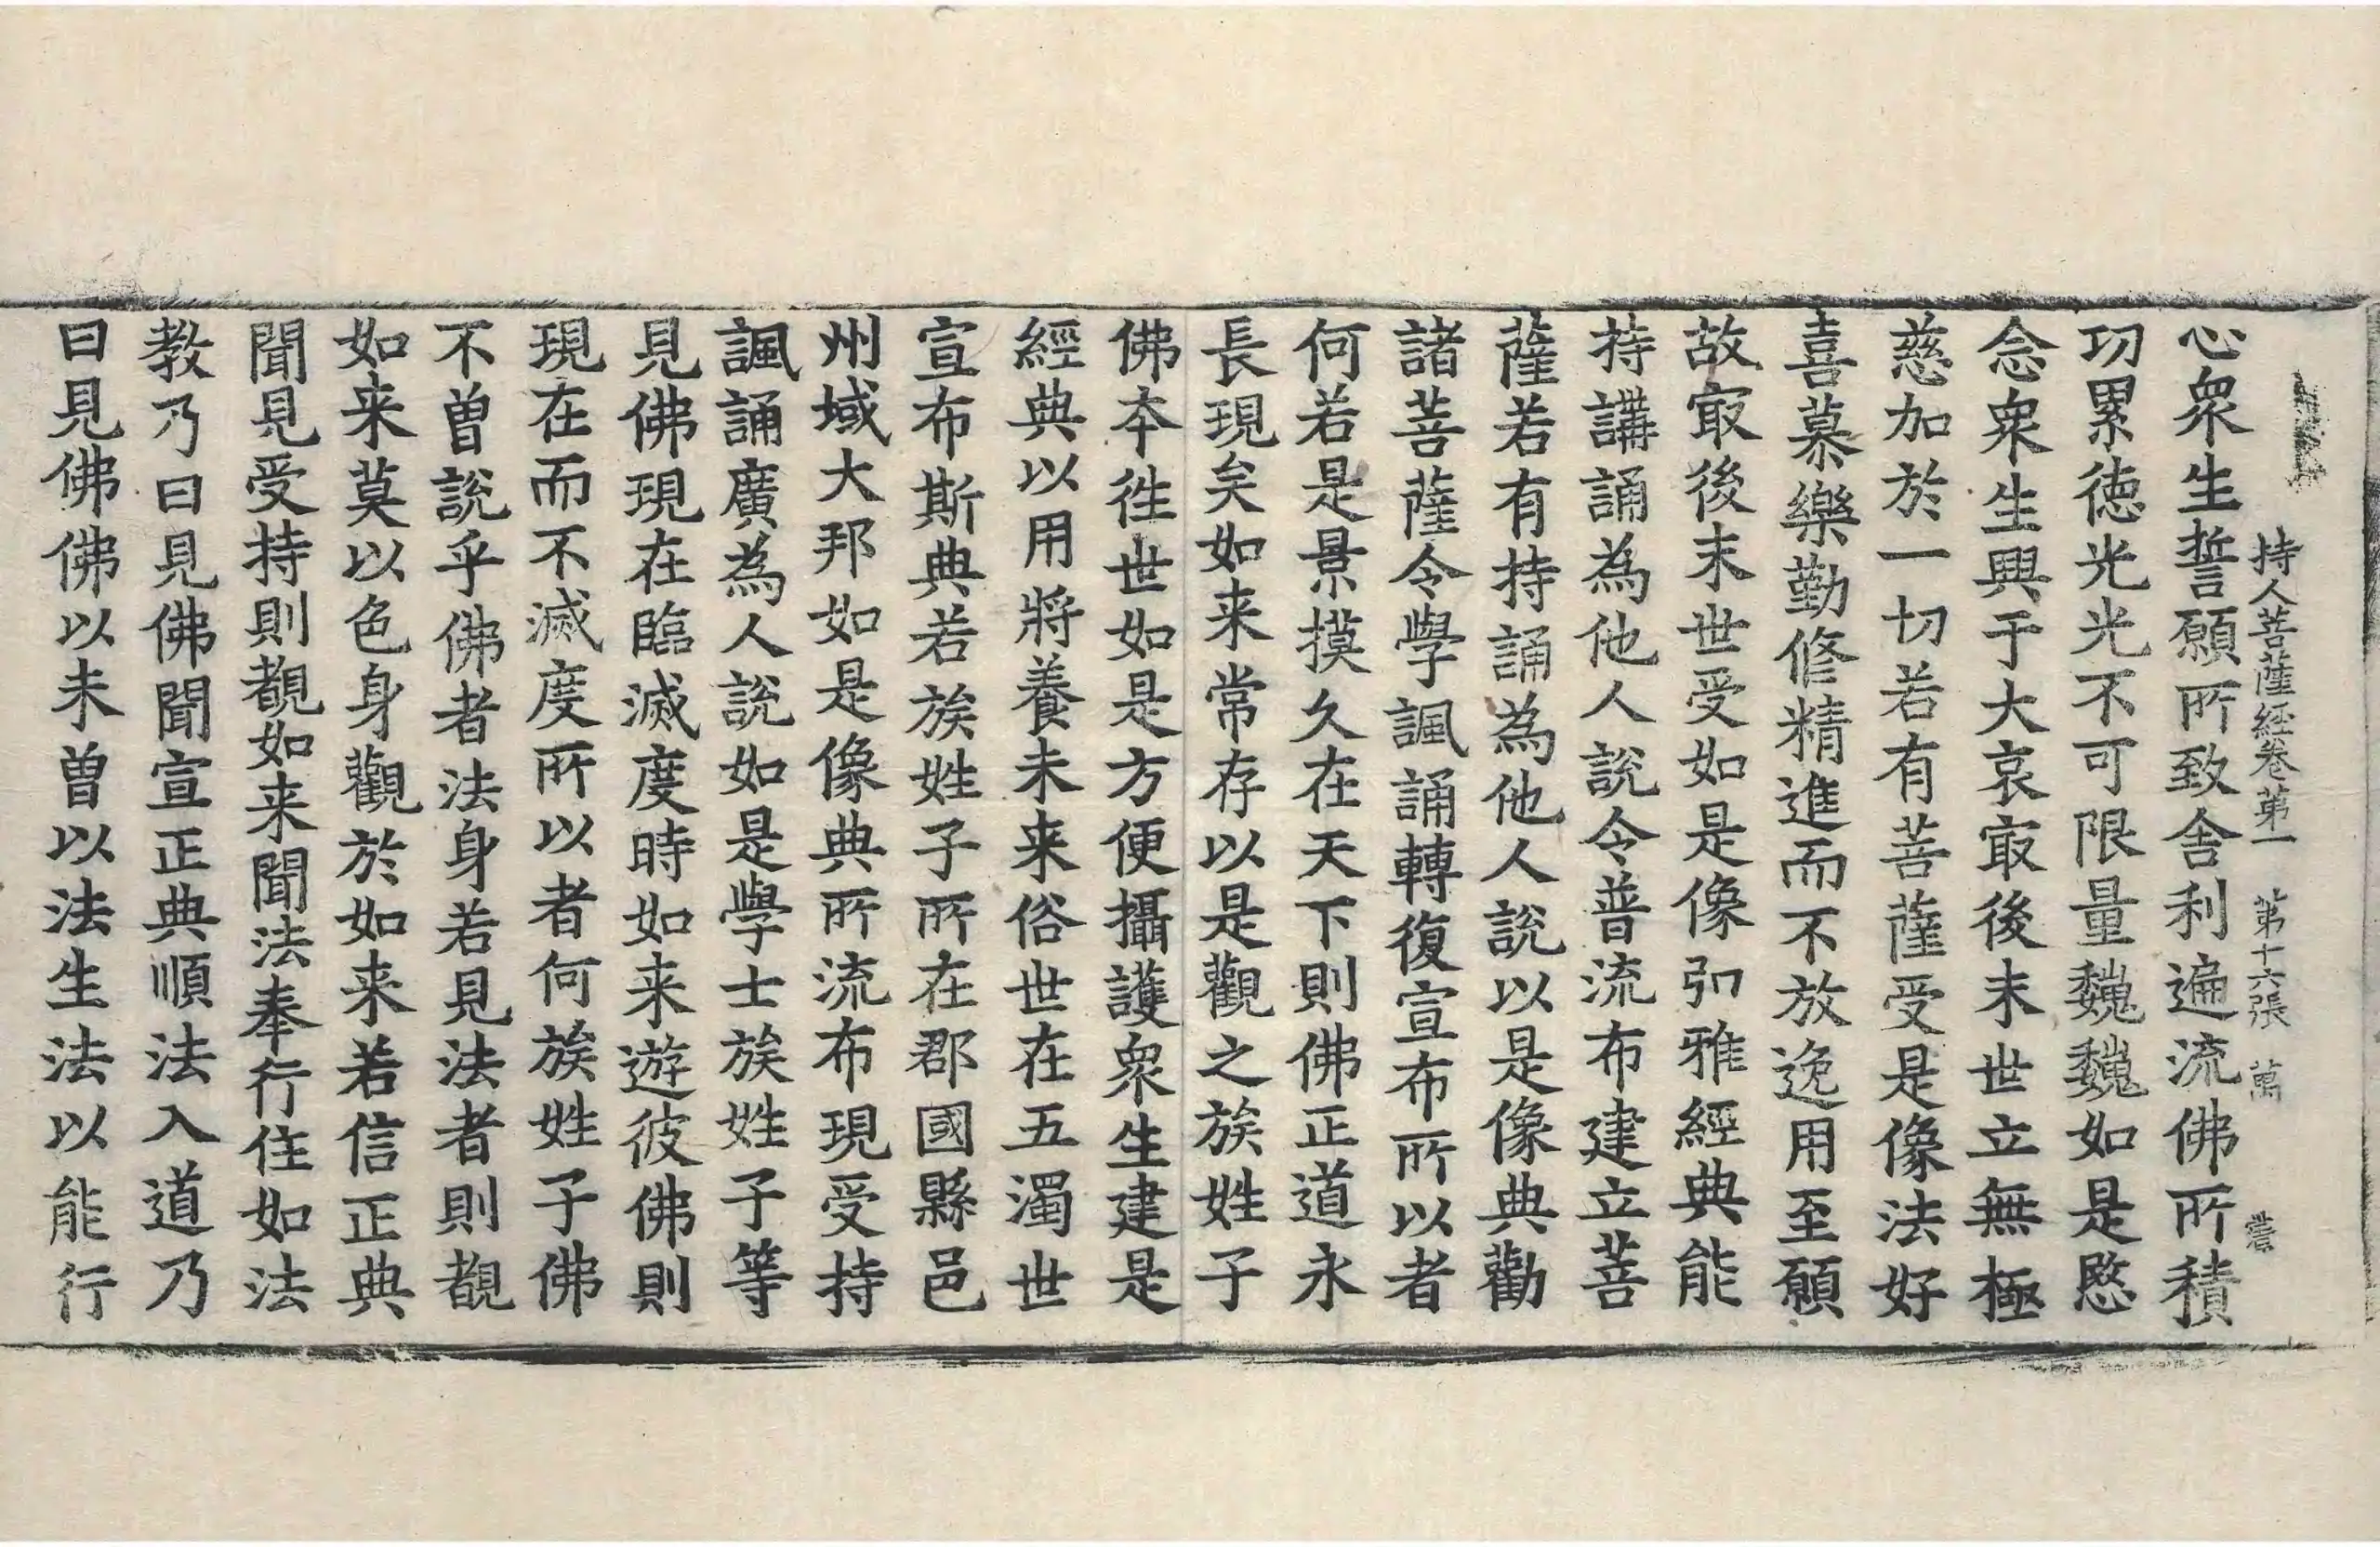 持人菩薩經卷第一　第十六張　萬
心衆生誓願所致舍利遍流佛所積
功累徳光光不可限量巍巍如是愍
念衆生興于大哀㝡後末世立無極
慈加於一切若有菩薩受是像法好
喜慕樂勤修精進而不放逸用至願
故㝡後末世受如是像弘雅經典能
持講誦為他人說令普流布建立菩
薩若有持誦為他人說以是像典勸
諸菩薩令學諷誦轉復宣布所以者
何若是景摸久在天下則佛正道永
長現矣如来常存以是觀之族姓子
佛本徃世如是方便攝護衆生建是
經典以用將養未来俗世在五濁世
宣布斯典若族姓子所在郡國縣邑
州域大邦如是像典所流布現受持
諷誦廣為人說如是學士族姓子等
見佛現在臨滅度時如来遊彼佛則
現在而不滅度所以者何族姓子佛
不曾說乎佛者法身若見法者則覩
如来莫以色身觀於如来若信正典
聞見受持則覩如来聞法奉行住如法
教乃曰見佛聞宣正典順法入道乃
曰見佛佛以未曾以法生法以能行